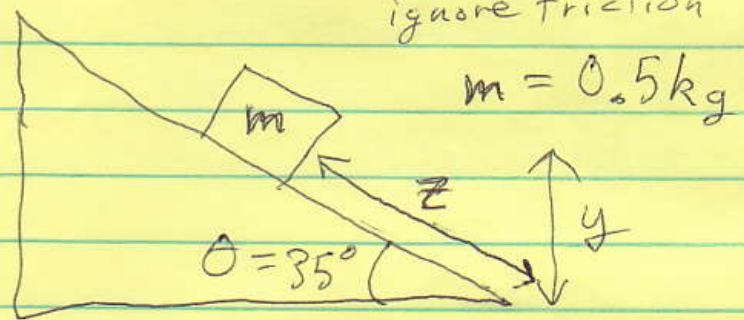 ignore friction
m = 0.5kg
m
z
y
θ = 35°